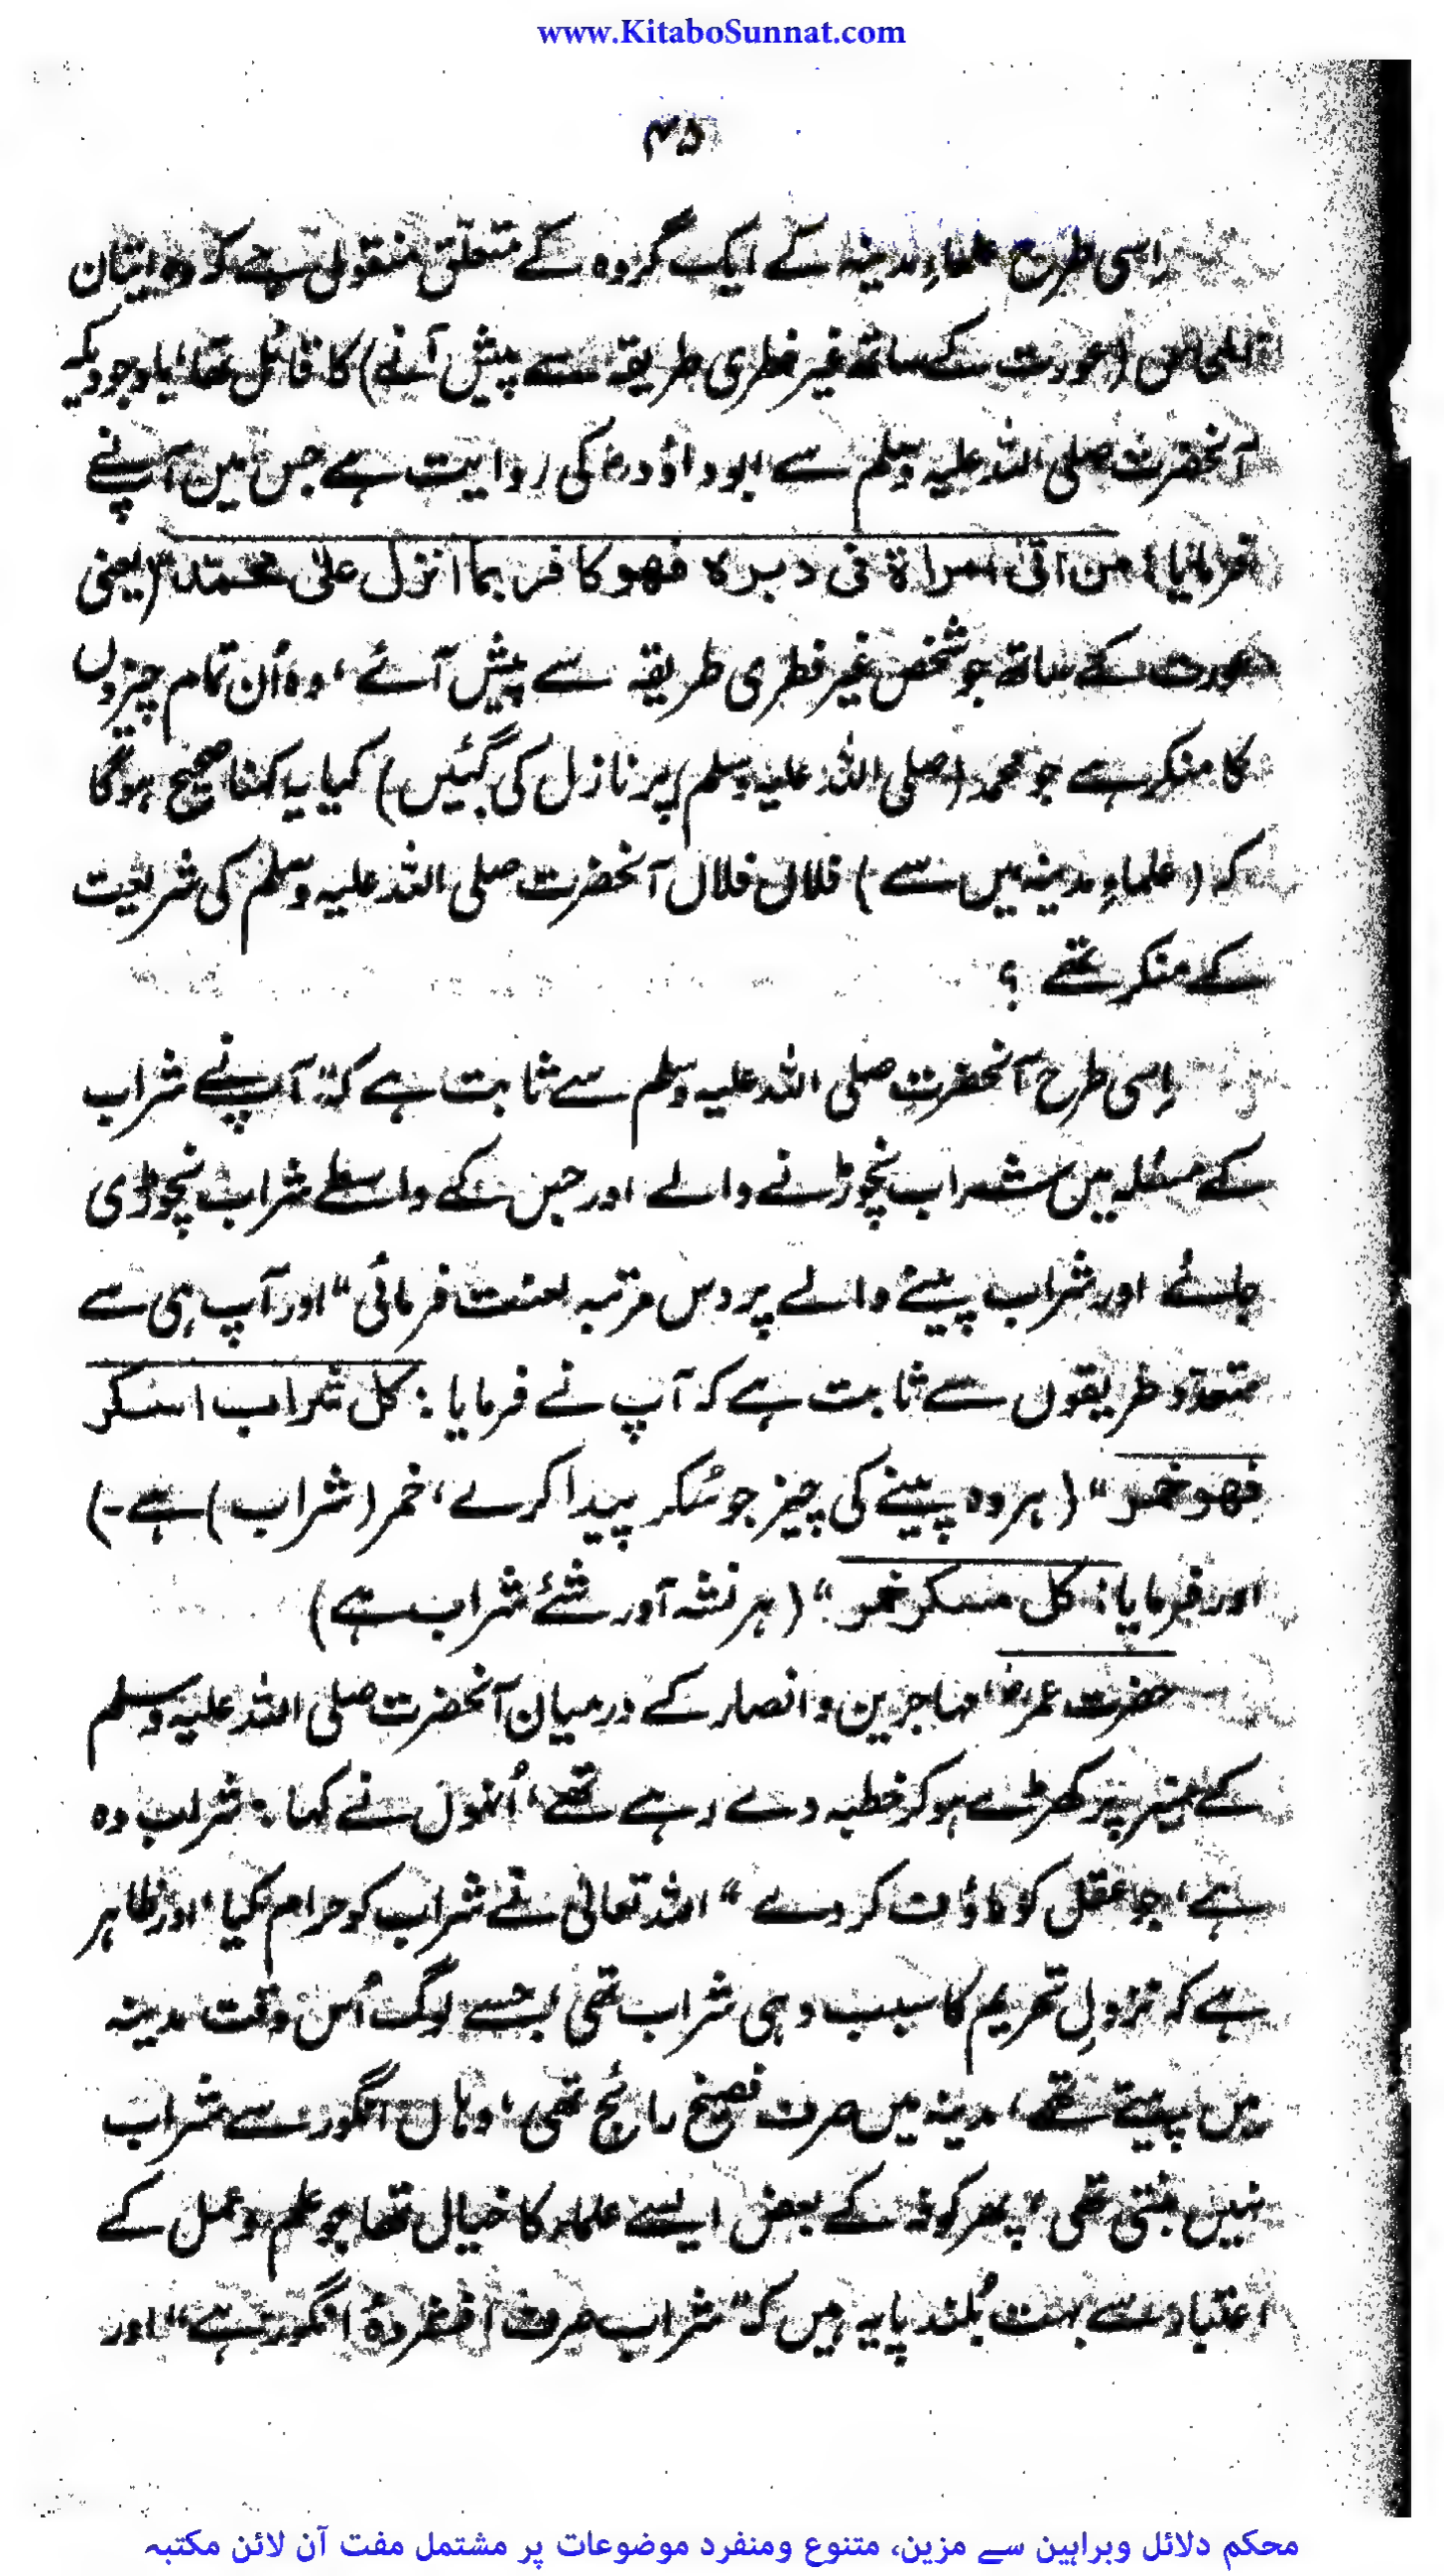 www.KitaboSunnat.com
۴۵
اسی طرح علماءِ مدینہ کے ایک گروہ کے متعلق منقول ہے کہ وہ ایتان
المحاش (عورت کے ساتھ غیر فطری طریقہ سے پیش آنے) کا قائل تھا، باوجودیکہ
آنحضرت صلی اللہ علیہ وسلم سے ابوداؤدؒ کی روایت ہے جس میں آپ نے
فرمایا: من اتی امراۃ فی دبرہ فھو کافر بما انزل علی محمدؐ (یعنی
عورت کے ساتھ جو شخص غیر فطری طریقہ سے پیش آئے، وہ اُن تمام چیزوں
کا منکر ہے جو محمد (صلی اللہ علیہ وسلم) پر نازل کی گئیں) کیا یہ کہنا صحیح ہوگا
کہ (علماءِ مدینہ میں سے) فلاں فلاں آنحضرت صلی اللہ علیہ وسلم کی شریعت
کے منکر تھے ؟
اِسی طرح آنحضرت صلی اللہ علیہ وسلم سے ثابت ہے کہ: آپ نے شراب
کے مسئلہ میں شراب نچوڑنے والے اور جس کے واسطے شراب نچوڑی
جائے اور شراب پینے والے پر دس مرتبہ لعنت فرمائی“ اور آپ ہی سے
متعدّد طریقوں سے ثابت ہے کہ آپ نے فرمایا : کل شراب اسکر
فھو خمر“ (ہر وہ پینے کی چیز جو سُکر پیدا کرے، خمر (شراب) ہے۔)
اور فرمایا: کل مسکر خمر“ (ہر نشہ آور شئے شراب ہے)
حضرت عمرؓ، مہاجرین و انصار کے درمیان آنحضرت صلی اللہ علیہ وسلم
کے منبر پر کھڑے ہوکر خطبہ دے رہے تھے، اُنہوں نے کہا: شراب وہ
ہے، جو عقل کو ماؤف کردے“ اللہ تعالیٰ نے شراب کو حرام کیا، اور ظاہر
ہے کہ نزولِ تحریم کا سبب وہی شراب تھی جسے لوگ اُس وقت مدینہ
میں پیتے تھے، مدینہ میں صرف فضیخ رائج تھی، وہاں انگور سے شراب
نہیں بنتی تھی، پھر کوفہ کے بعض ایسے علماء کا خیال تھا جو علم و عمل کے
اعتبار سے بہت بُلند پایہ ہیں کہ ”شراب صرف افشردۂ انگور ہے“ اور
محکم دلائل وبراہین سے مزین، متنوع ومنفرد موضوعات پر مشتمل مفت آن لائن مکتبہ